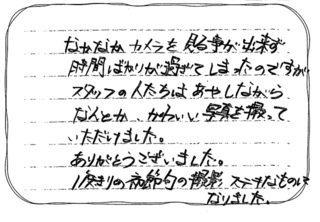 なかなかカメラを見る事が出来ず
時間ばかりが過ぎてしまったのですが
スタッフの人たちはあせしながら
なんとか、かわいい写真を撮って
いただけました。
ありがとうございました。
1度きりの初節句の撮影 ステキなものに
なりました。